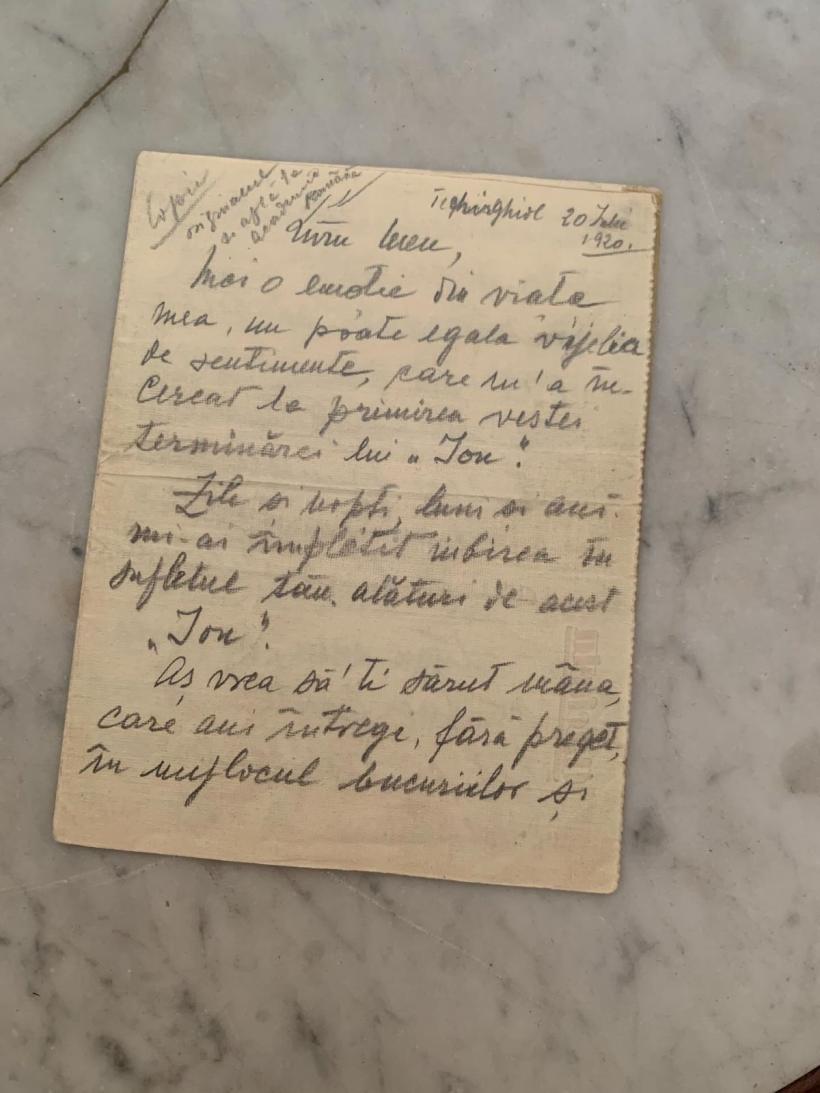 Copie
originalul
se află la
Academia
Română
Techirghiol 20 Iulie
1920.
Liviu meu,
Nici o emoție din viața
mea, nu poate egala vijelia
de sentimente, care m'a în-
cercat la primirea vestei
terminărei lui „Ion".
Zile si nopți, luni si ani.
mi-ai împletit iubirea în
sufletul tău, alături de acest
„Ion".
Aș vrea să'ti sărut mâna,
care ani întregi, fără preget,
în mijlocul bucuriilor și